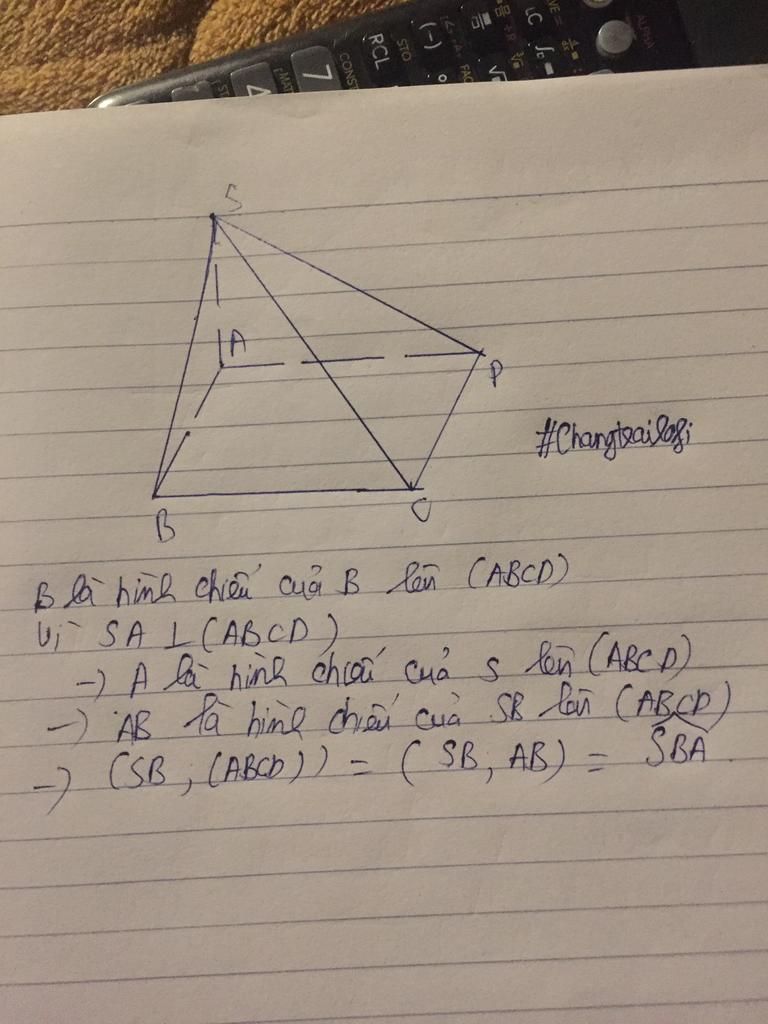 RCL
STO
(-)
CONST
7
4
ALPHA
S
A
D
B
C
#Changtraisofi
B là hình chiếu cuả B lên (ABCD)
Vì SA ⊥ (ABCD)
→ A là hình chiếu cuả S lên (ABCD)
→ AB là hình chiếu cuả SB lên (ABCD)
→ (SB, (ABCD)) = (SB, AB) = SBA